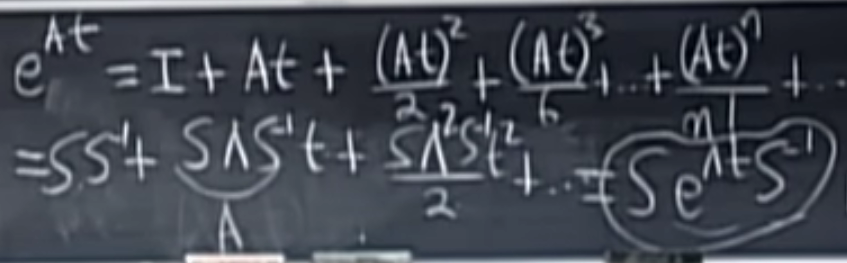 e^{At} = I + At + \frac{(At)^2}{2} + \frac{(At)^3}{6} + .. + \frac{(At)^n}{n!} + ..
= SS^{-1} + SΛS^{-1}t + \frac{SΛ^2S^{-1}t^2}{2} + ... = Se^{Λt}S^{-1}
A